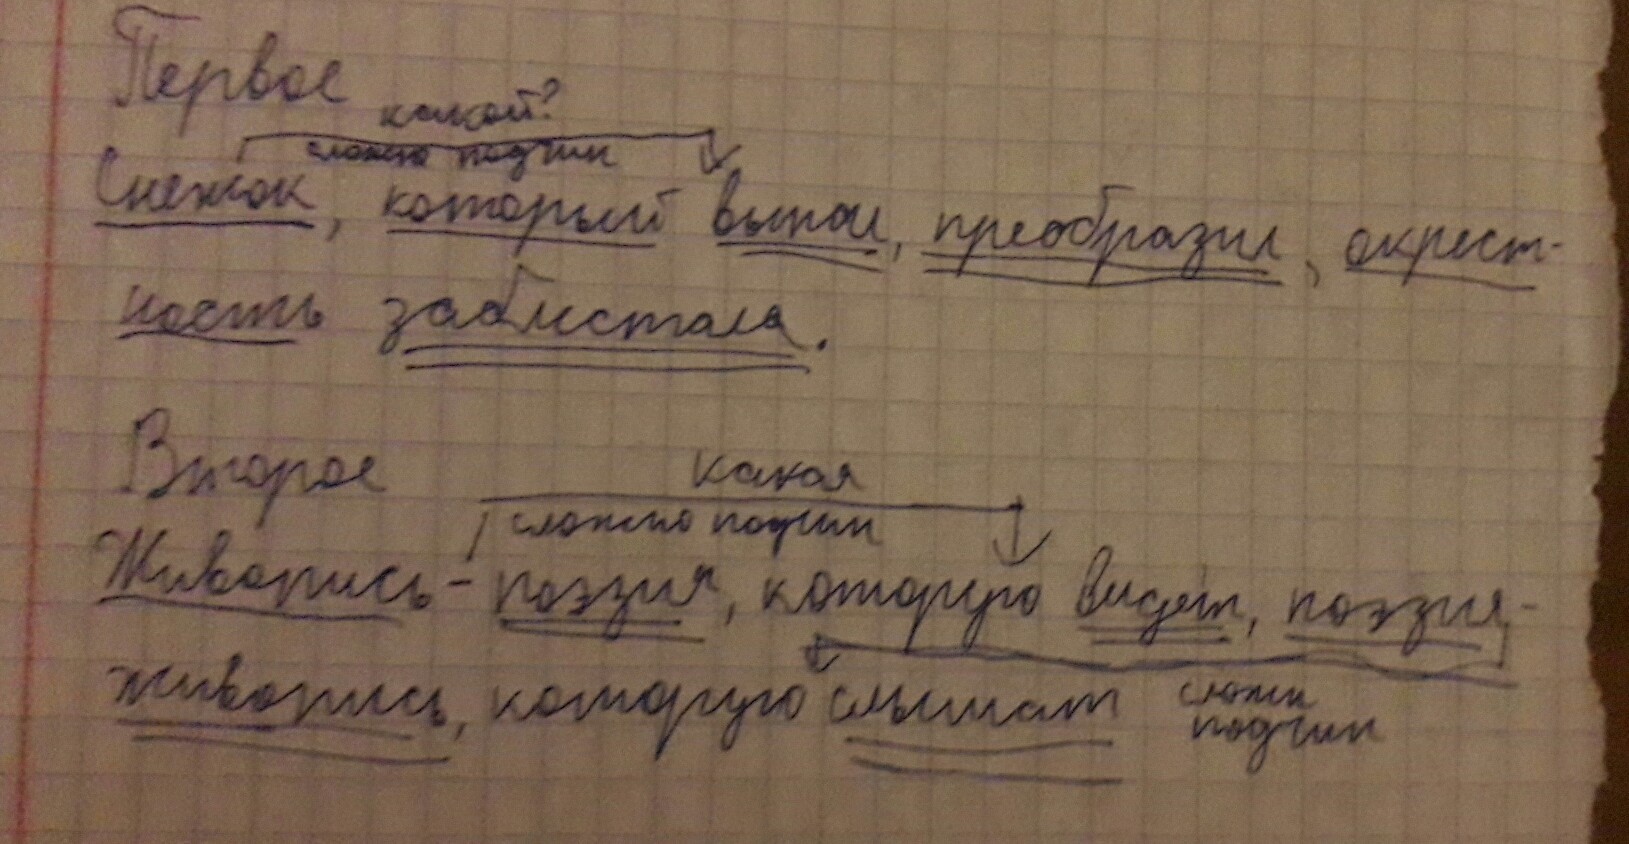 Первое
какой?
сложно подчин
Снежок, который выпал, преобразил, окрест-
ность заблистала.
Второе
какая
сложно подчин
Живопись - поэзия, которую видят, поэзия -
живопись, которую слышат
сложн
подчин